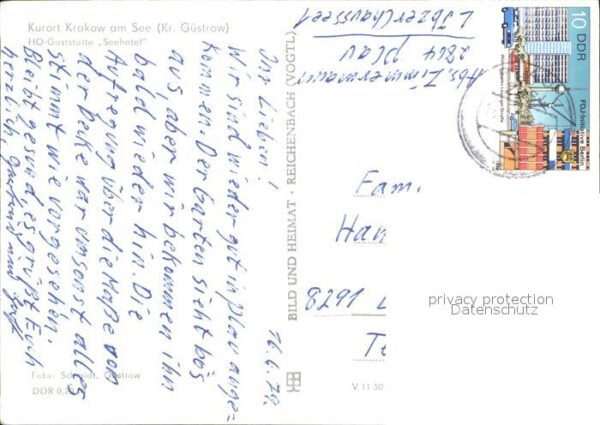 Kurort Krakow am See (Kr. Güstrow)
HO-Gaststätte „Seehotel"
16.6.79.
Ihr Lieben!
Wir sind wieder gut in Plau ange-
kommen. Der Garten sieht bös
aus, aber wir bekommen ihn
bald wieder hin. Die
Aufregung über die Maße von
der Decke war umsonst alles
stimmt wie vorgesehen.
Bleibt gesund, es grüßt Euch
herzlich, und
Foto: Schmidt, Güstrow
DDR 6,
BILD UND HEIMAT · REICHENBACH (VOGTL)
V 11 50
Abs. Zimmermann
2864 Plau
Lübzerchaussee 1
10 DDR
FDJ-Initiative Berlin
Fam.
Han
8291
privacy protection
Datenschutz